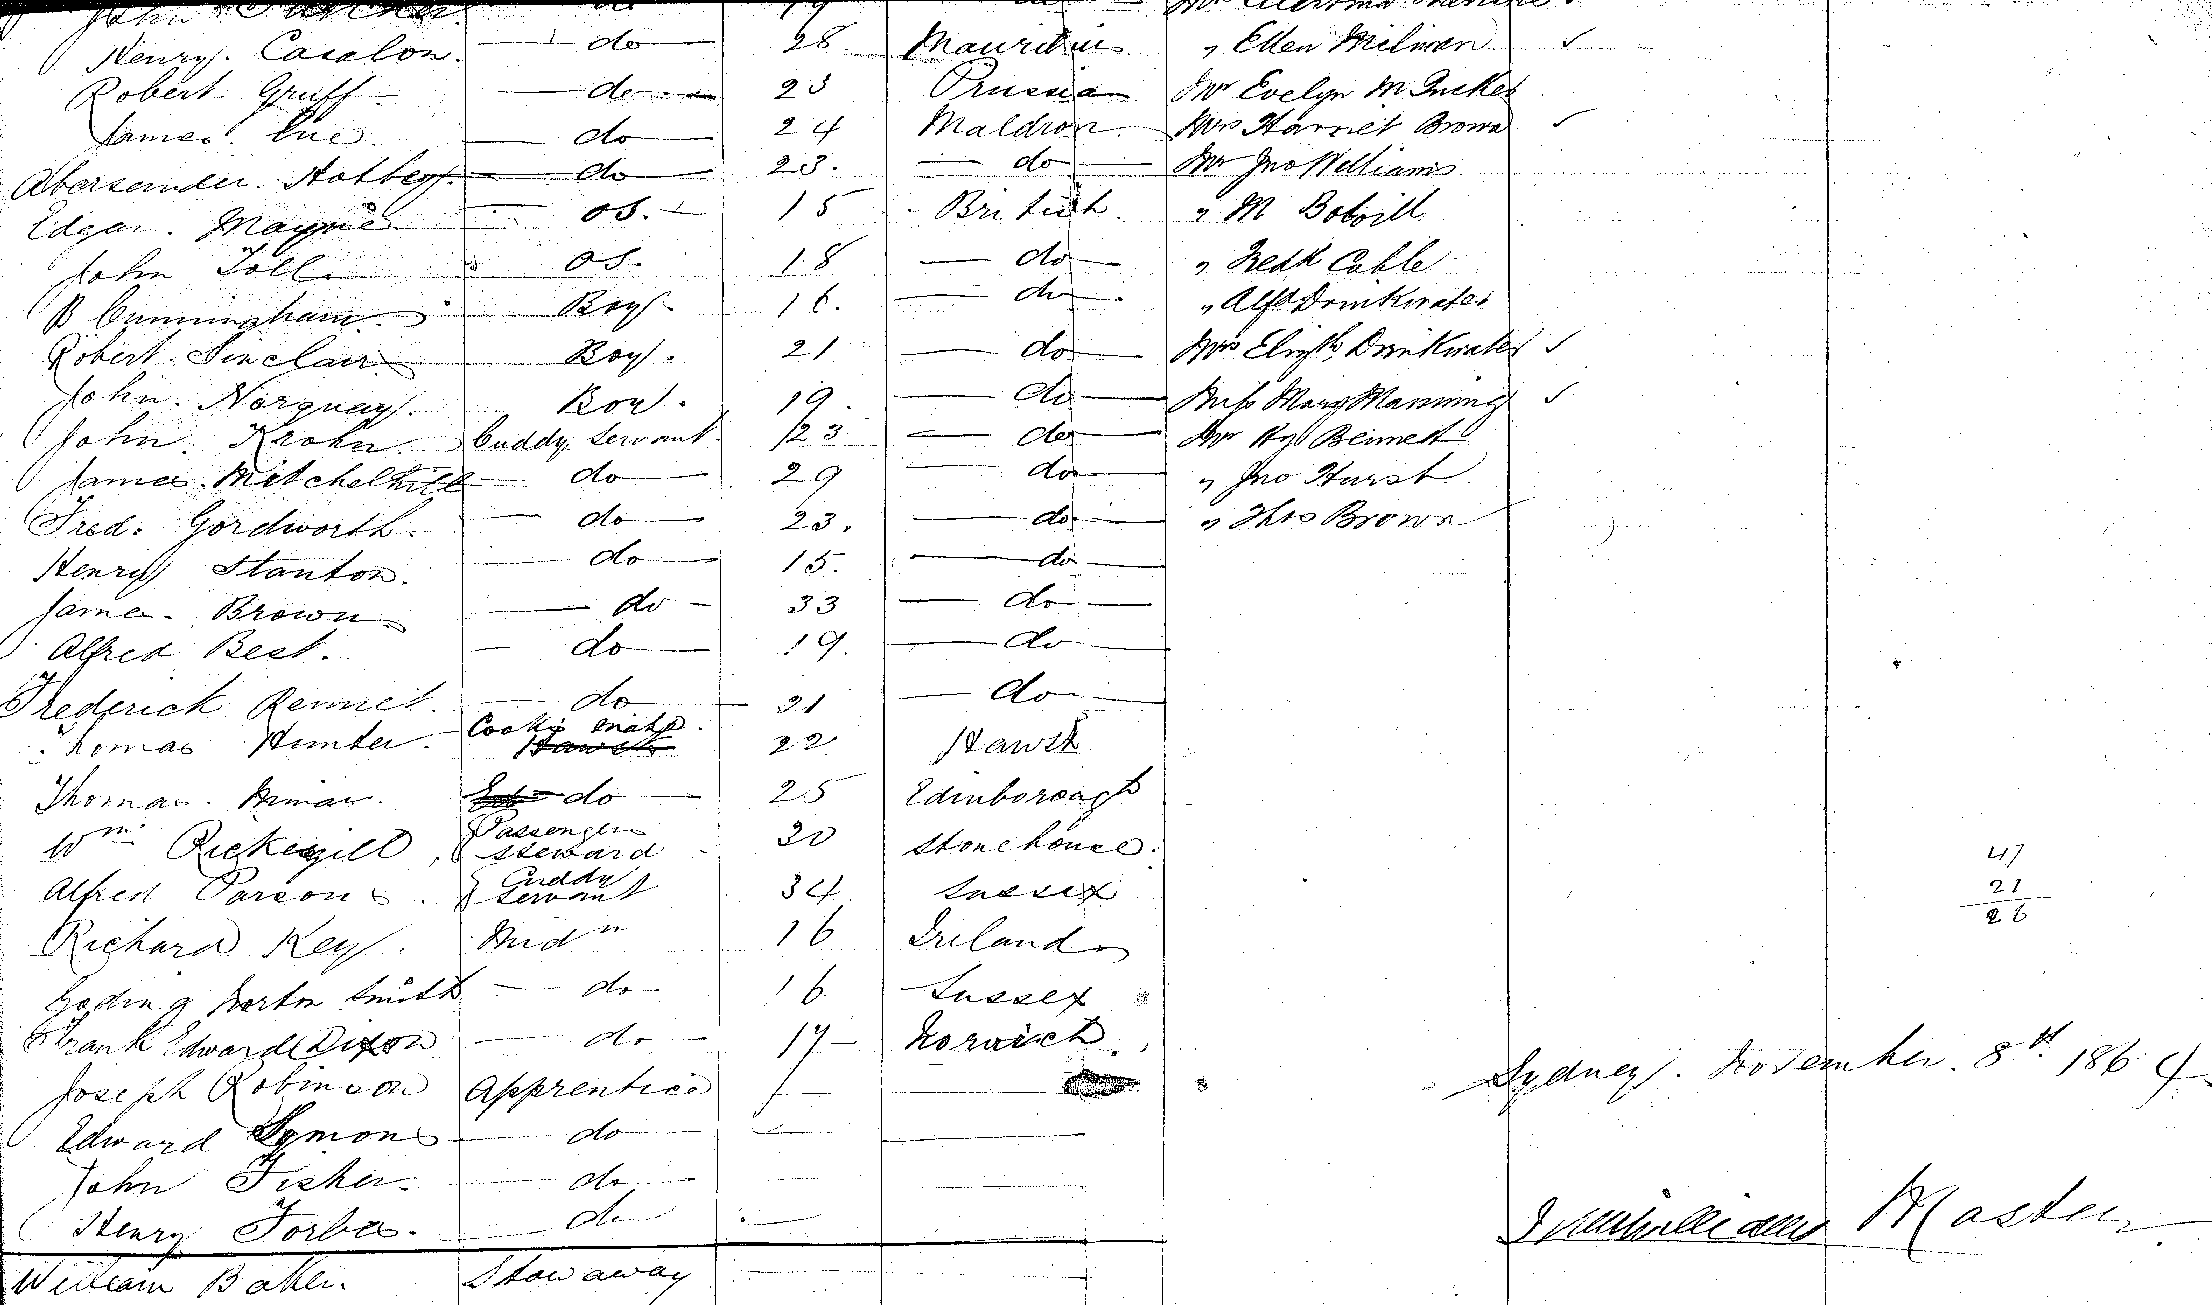 Henry Casalon do 28 Mauritius " Ellen Milman
Robert Gruff do 23 Prussia Mr Evelyn M
James do 24 Maldron Mrs Harriet Brown
do 23 do Mr Jno Williams
Edgar Mayne OS 15 British " M Bobvill
John Toll OS 18 do " Fredk Cable
B Cunningham Boy 16 do " Alfd Drinkwater
Robert Sinclair Boy 21 do Mrs Elizth Drinkwater
John Norquay Boy 19 do Miss Mary Manning
John Krohn Cuddy Servant 23 do Mr Hy Bennett
James Mitchelhill do 29 do " Jno Hurst
Fred. Gordworth do 23 do " Thos Brown
Henry Stanton do 15 do
James Brown do 33 do
Alfred Best do 19 do
Frederick Rennet do 21 do
Thomas Hunter Cooks mate 22
Thomas do 25 Edinborough
Wm Pickersgill Passengers Steward 30 Stonehouse
Alfred Parsons Cuddy Servant 34 Sussex
Richard Key Midn 16 Ireland
Norton Smith do 16 Sussex
Frank Edward Dixon do 17 Norwich
Joseph Robinson Apprentice
Edward Symons do
John Fisher do
Henry Forbes do
William Baker Stowaway
47
21
26
Sydney November 8th 1864
Master